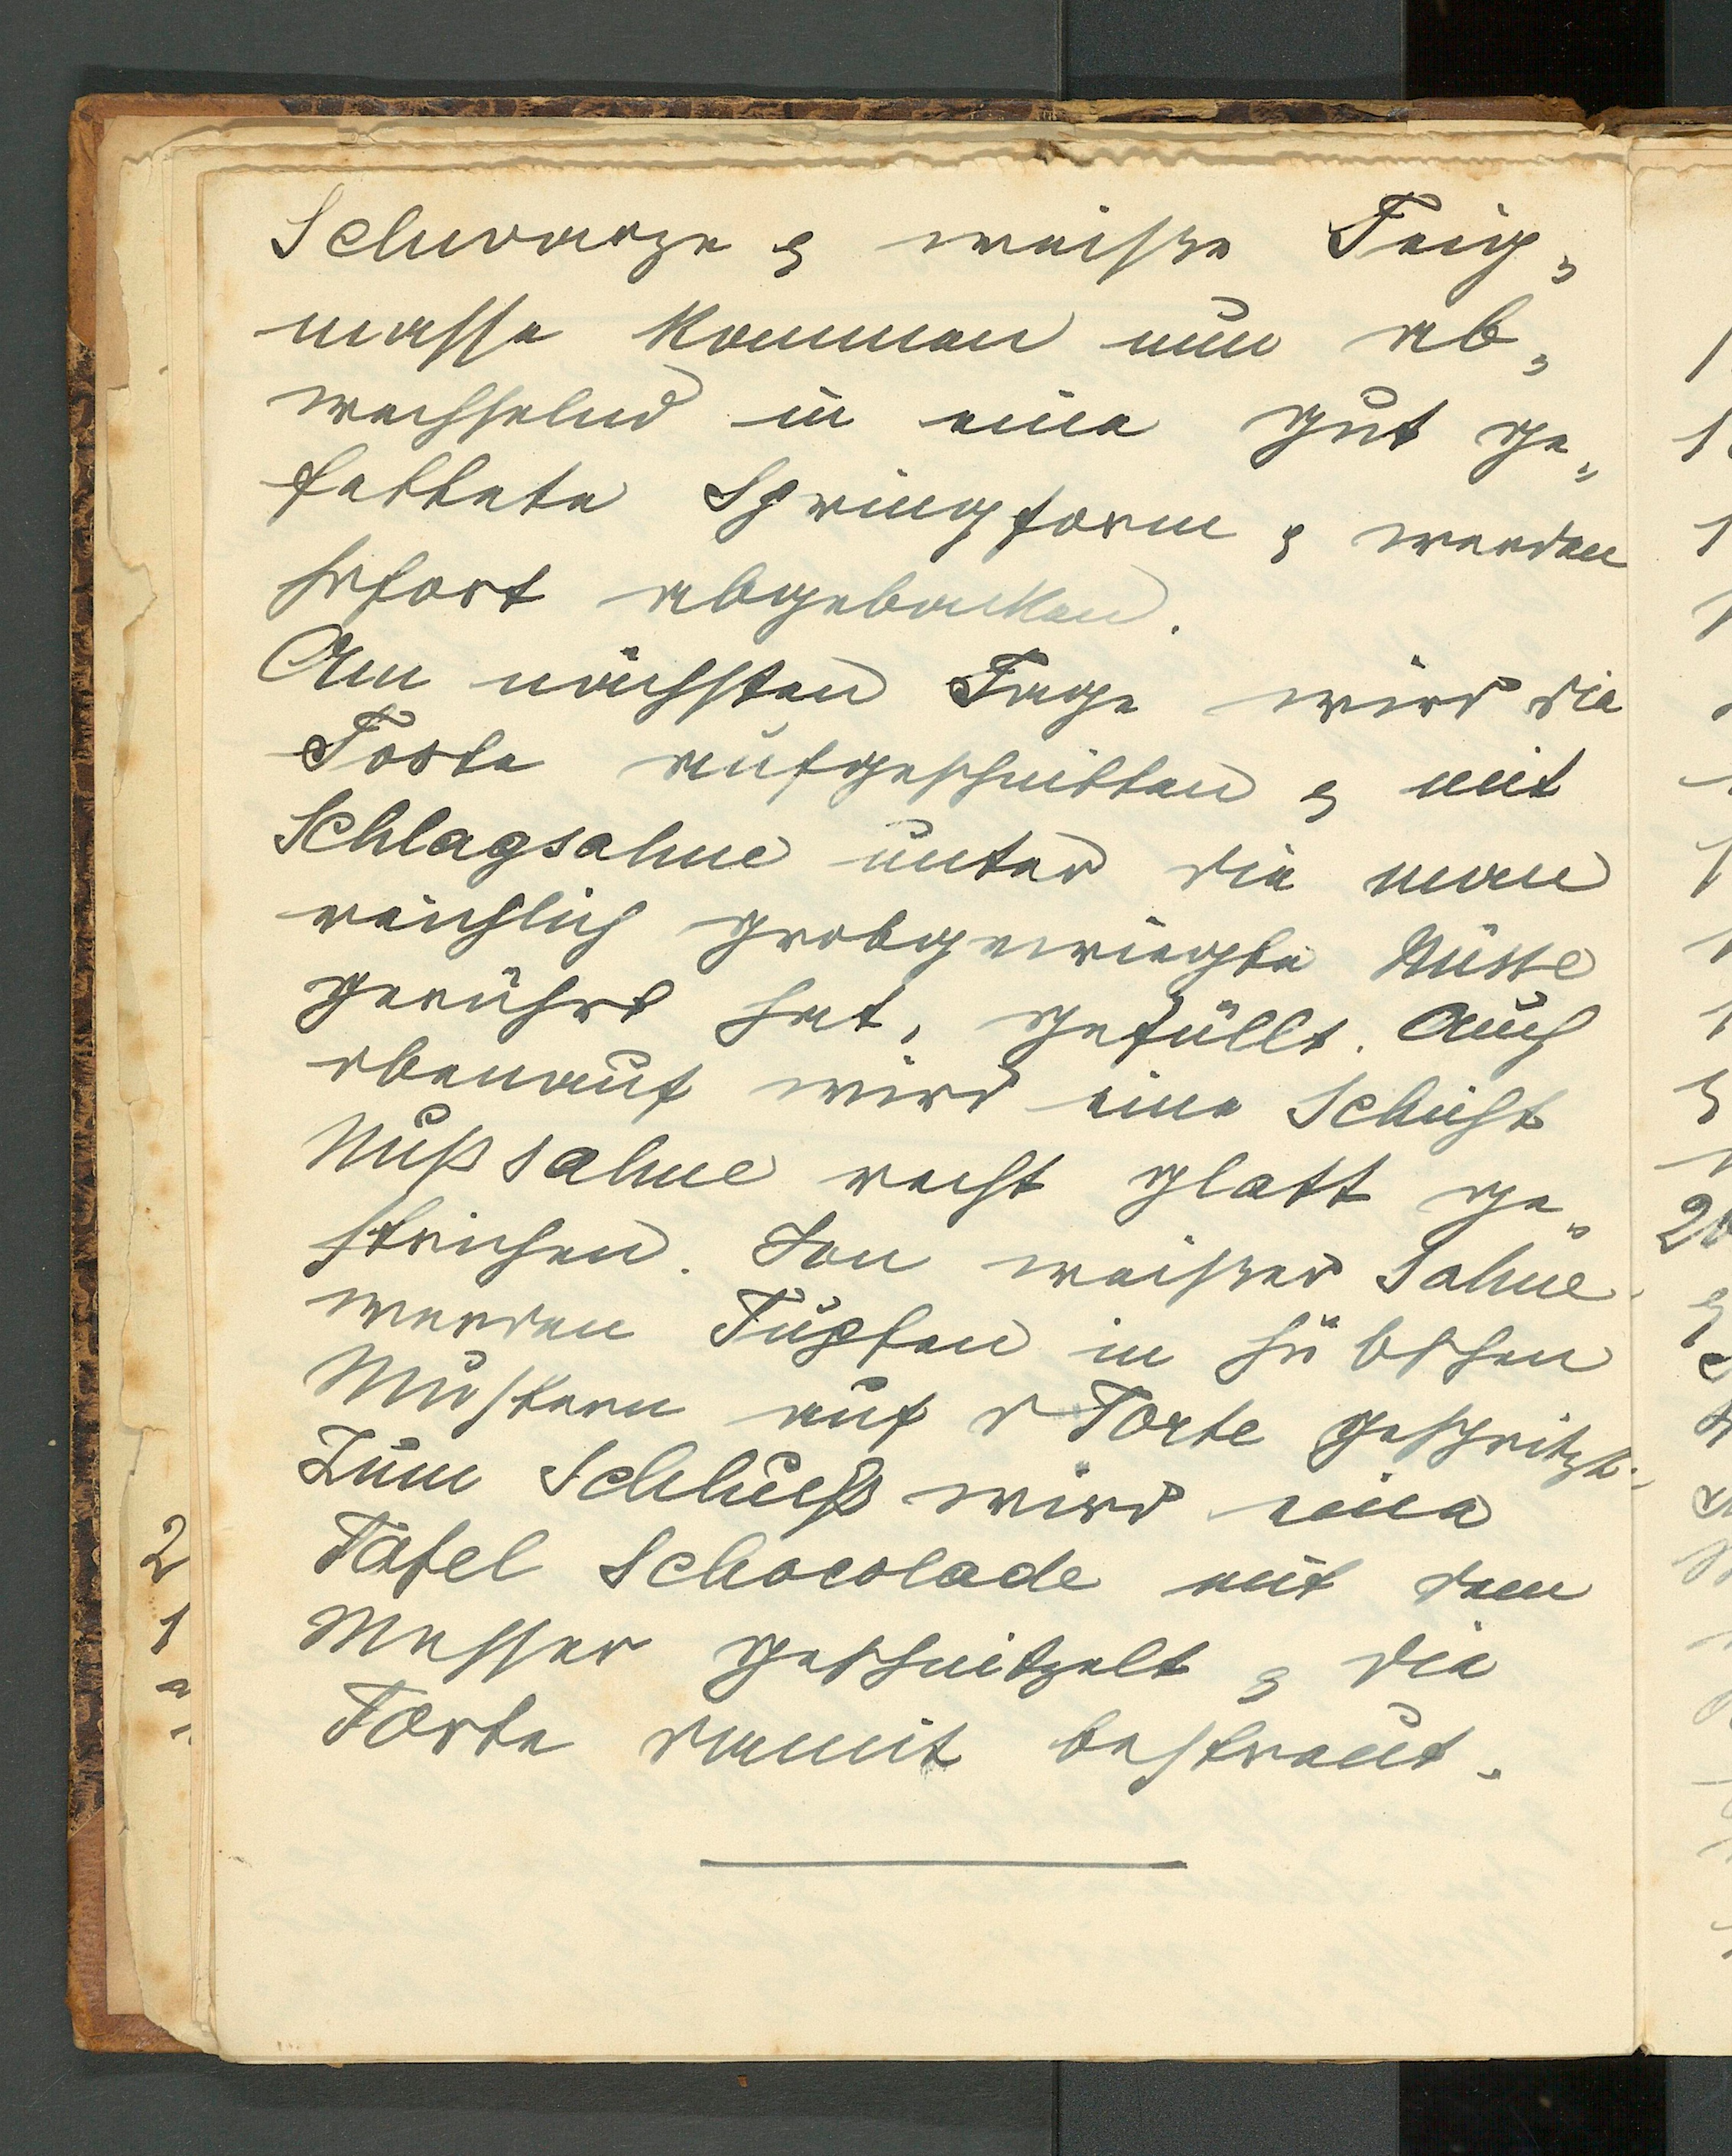 Schwarze & weiße Teig„
masse kommen nun ab„
wechselnd in eine gut ge„
fettete Springform & werden
sofort abgebacken.
Am nächsten Tage wird die
Torte aufgeschnitten & mit
Schlagsahne unter die man
reichlich grobgewiegte Nüsse
gerührt hat, gefüllt. Auch
obenauf wird eine Schicht
Nußsahne recht glatt ge„
strichen. Von weißer Sahne
werden Tupfen in hübschen
Mustern auf d Torte gespritzt.
Zum Schluß wird eine
Tafel Schocolade mit dem
Messer geschnitzelt & die
Torte damit bestreut.
2
1